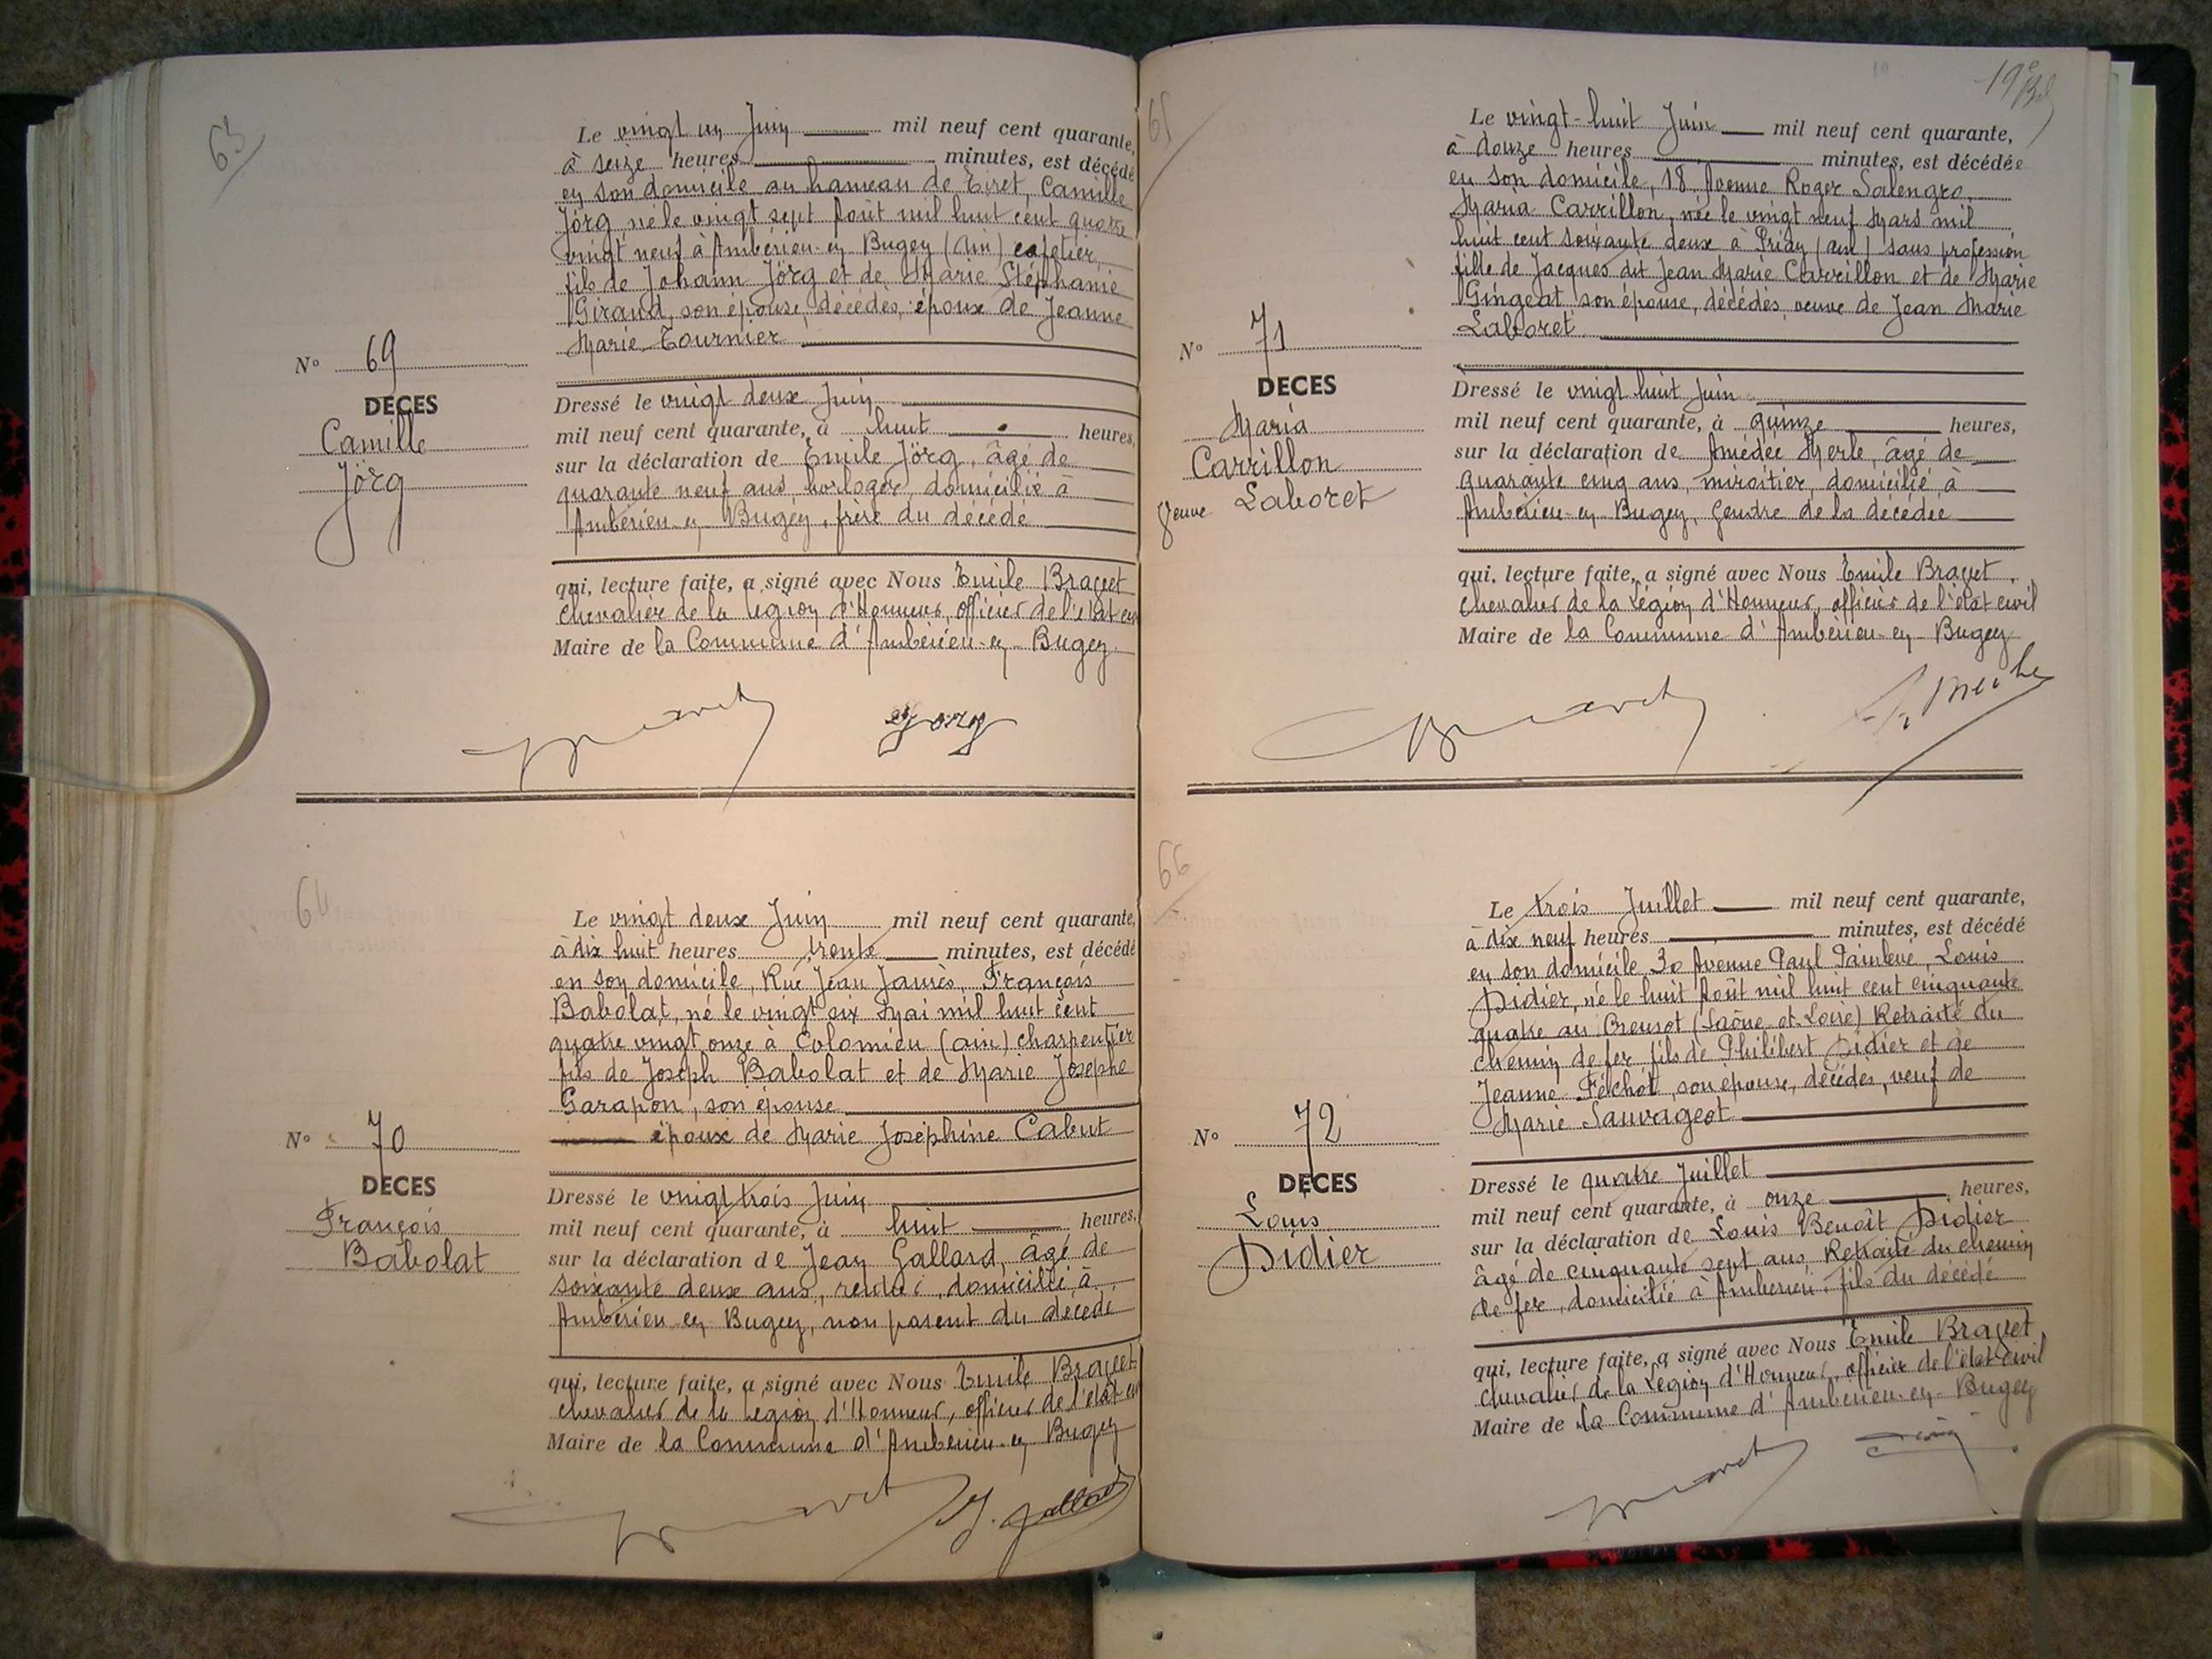 63
Le vingt un Juin mil neuf cent quarante,
à seize heures minutes, est décédé
en son domicile au hameau de Tiret, Camille
Jörg, né le vingt sept Août mil huit cent quatre
vingt neuf à Ambérieu-en Bugey (Ain) cafetier,
fils de Johann Jörg et de Marie Stéphanie
Giraud, son épouse, décédés, époux de Jeanne
Marie Tournier
N° 69
DECES
Camille
Jörg
Dressé le vingt deux Juin
mil neuf cent quarante, à huit heures,
sur la déclaration de Emile Jörg, âgé de
quarante neuf ans, horloger, domicilié à
Ambérieu-en Bugey, frère du décédé
qui, lecture faite, a signé avec Nous Emile Bravet
Chevalier de la Légion d'Honneur, officier de l'état civ
Maire de la Commune d'Ambérieu-en-Bugey.
Bravet Jorg
64
Le vingt deux Juin mil neuf cent quarante,
à dix huit heures trente minutes, est décédé
en son domicile, Rue Jean Jaurès, François
Babolat, né le vingt six Mai mil huit cent
quatre vingt onze à Colomieu (ain) charpentier
fils de Joseph Babolat et de Marie Josephe
Garapon, son épouse
époux de Marie Joséphine Cabut
N° 70
DECES
François
Babolat
Dressé le vingt trois Juin
mil neuf cent quarante, à huit heures,
sur la déclaration de Jean Gallard, âgé de
soixante deux ans, domicilié à
Ambérieu en Bugey, non parent du décédé
qui, lecture faite, a signé avec Nous Emile Bravet
chevalier de la Légion d'Honneur, officier de l'état civ
Maire de la Commune d'Ambérieu-en Bugey
Bravet J. Gallard
19e
65
Le vingt-huit Juin mil neuf cent quarante,
à douze heures minutes, est décédée
en son domicile, 18, Avenue Roger Salengro,
Maria Carrillon, née le vingt neuf Mars mil
huit cent soixante deux à Priay (ain) sans profession
fille de Jacques dit Jean Marie Carrillon et de Marie
Gingeat son épouse, décédés, veuve de Jean Marie
Laboret
N° 71
DECES
Maria
Carrillon
Veuve Laboret
Dressé le vingt huit Juin
mil neuf cent quarante, à quinze heures,
sur la déclaration de Amédée Merle, âgé de
quarante cinq ans, miroitier, domicilié à
Ambérieu-en Bugey, gendre de la décédée
qui, lecture faite, a signé avec Nous Emile Bravet,
Chevalier de la Légion d'Honneur, officier de l'état civil
Maire de la Commune d'Ambérieu-en-Bugey
Bravet
66
Le trois Juillet mil neuf cent quarante,
à dix neuf heures minutes, est décédé
en son domicile 30 Avenue Paul Painlevé, Louis
Didier, né le huit Août mil huit cent cinquante
quatre au Creusot (Saône-et-Loire) Retraité du
chemin de fer fils de Philibert Didier et de
Jeanne Féchot, son épouse, décédés, veuf de
Marie Sauvageot
N° 72
DECES
Louis
Didier
Dressé le quatre Juillet
mil neuf cent quarante, à onze heures,
sur la déclaration de Louis Benoît Didier
âgé de cinquante sept ans, Retraité du chemin
de fer, domicilié à Ambérieu, fils du décédé
qui, lecture faite, a signé avec Nous Emile Bravet
Chevalier de la Légion d'Honneur, officier de l'état civil
Maire de la Commune d'Ambérieu-en-Bugey
Bravet